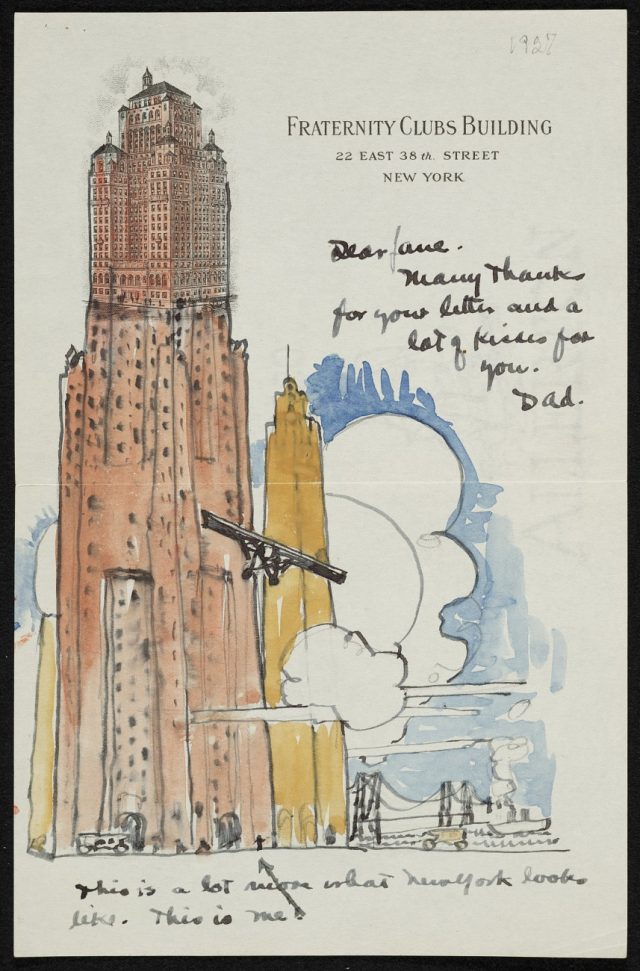 1927
FRATERNITY CLUBS BUILDING
22 EAST 38th. STREET
NEW YORK
Dear Jane.
Many Thanks
for your letter and a
lot of kisses for
you.
Dad.
This is a lot more what New York looks
like. This is me!